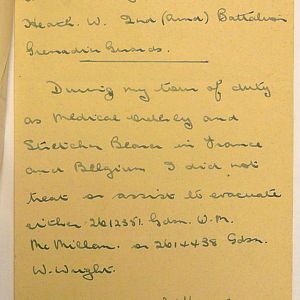 Heath. W. 2nd (Armd) Battalion
Grenadier Guards.
During my tour of duty
as Medical Orderly and
Stretcher Bearer in France
and Belgium I did not
treat or assist to evacuate
either 2612351. Gdsn. W. M.
McMillan. or 2614438 Gdsn.
W. Wright.